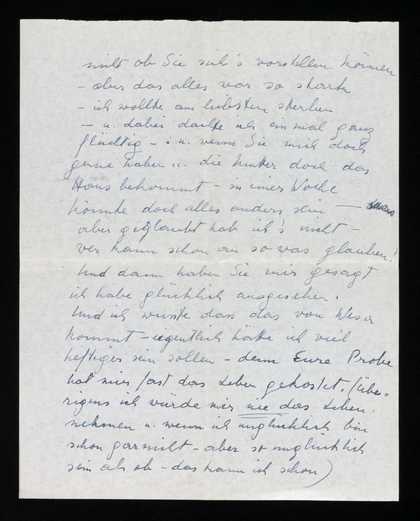 nicht ob Sie sich's vorstellen können
- aber das alles war so stark
- ich wollte am liebsten sterben
- u. dabei dachte ich einmal ganz
flüchtig - : u. wenn Sie mich doch
gerne haben u. die Mutter doch das
Haus bekommt - in einer Woche
könnte doch alles anders sein -
aber geglaubt hab ich's nicht -
wer kann schon an so was glauben!
Und dann haben Sie mir gesagt
ich habe glücklich ausgesehen.
Und ich wusste dass das von
kommt - eigentlich hätte ich viel
heftiger sein sollen - denn Eure Probe
hat mich fast das Leben gekostet. (übe-
rigens ich würde mir nie das Leben
nehmen u. wenn ich unglücklich bin
schon gar nicht - aber so unglücklich
sein als ob - das kann ich schon)